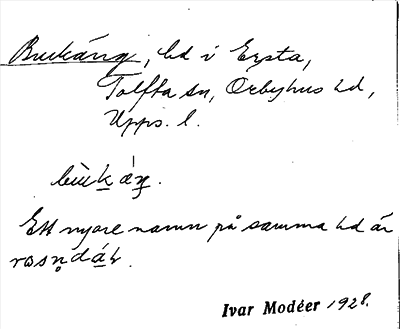 Buckáng, ld i Ersta,
Tolfta sn, Örbyhus hd,
Upps. l.
bùkáŋ.
Ett nyare namn på samma ld är
rosṇdáḷ.
Ivar Modéer 1928.